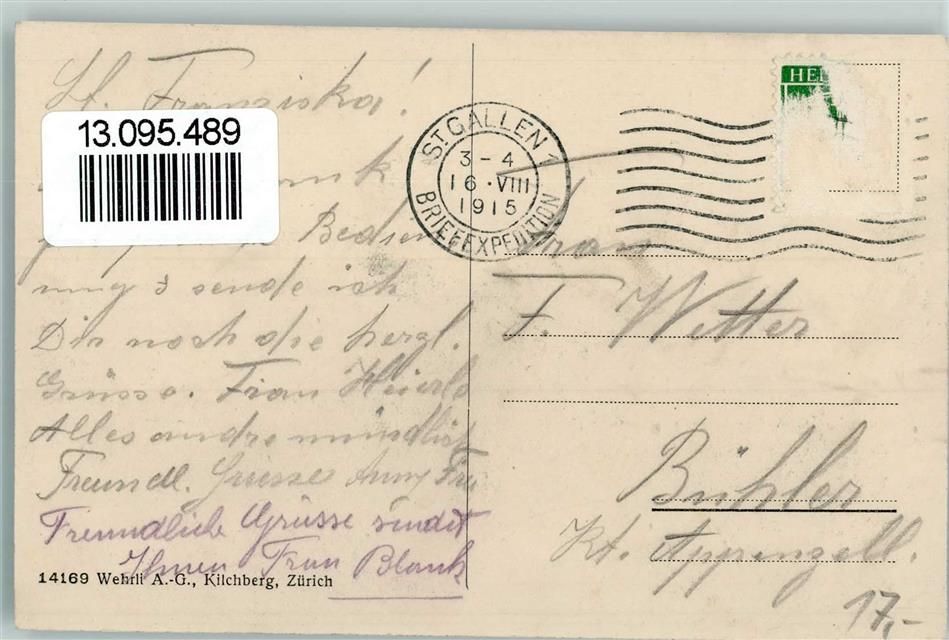 Franziska!
13.095.489
sende ich
Dir noch die herzl.
Grüsse. Frau
Alles andre mündlich
Freundl. Grüsse Anny
Freundliche Grüsse sendet
Ihnen Frau Blank
14169 Wehrli A.-G., Kilchberg, Zürich
ST. GALLEN 1
3-4
16.VIII
1915
BRIEFEXPEDITION
HE
Frau
F. Wetter
Bühler
Kt. Appenzell.
17,-